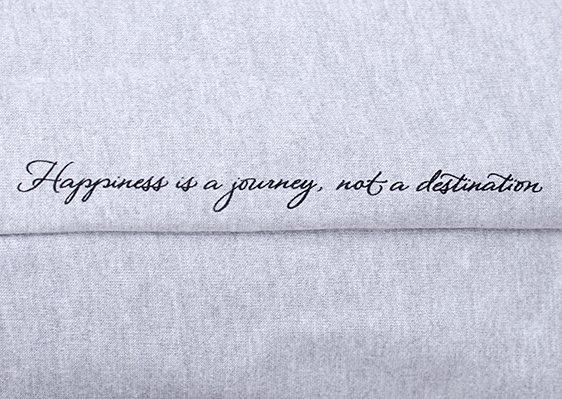 Happiness is a journey, not a destination